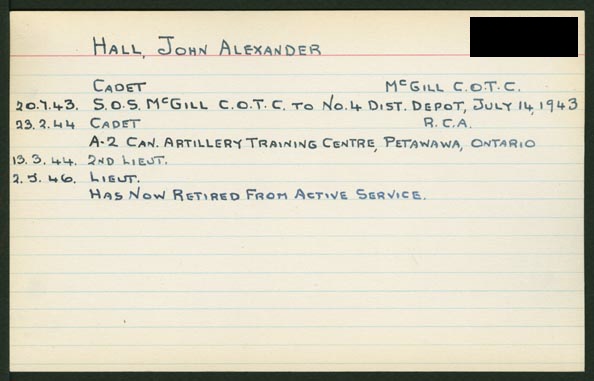 HALL, JOHN ALEXANDER
CADET McGILL C.O.T.C.
20.7.43. S.O.S. McGILL C.O.T.C. TO No.4 DIST. DEPOT, JULY 14, 1943
23.2.44 CADET R.C.A.
A-2 CAN. ARTILLERY TRAINING CENTRE, PETAWAWA, ONTARIO
13.3.44. 2ND LIEUT.
2.5.46. LIEUT.
HAS NOW RETIRED FROM ACTIVE SERVICE.